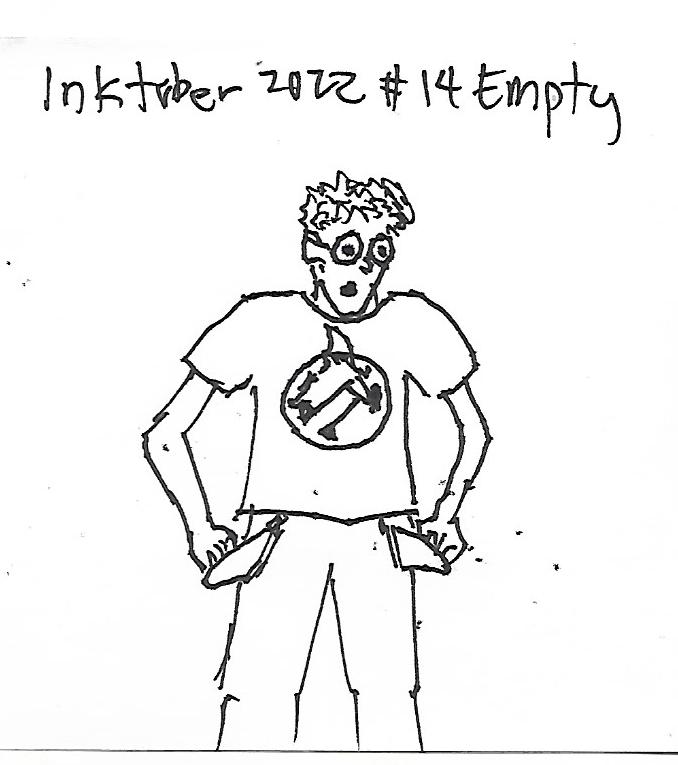 Inktober 2022 #14 Empty